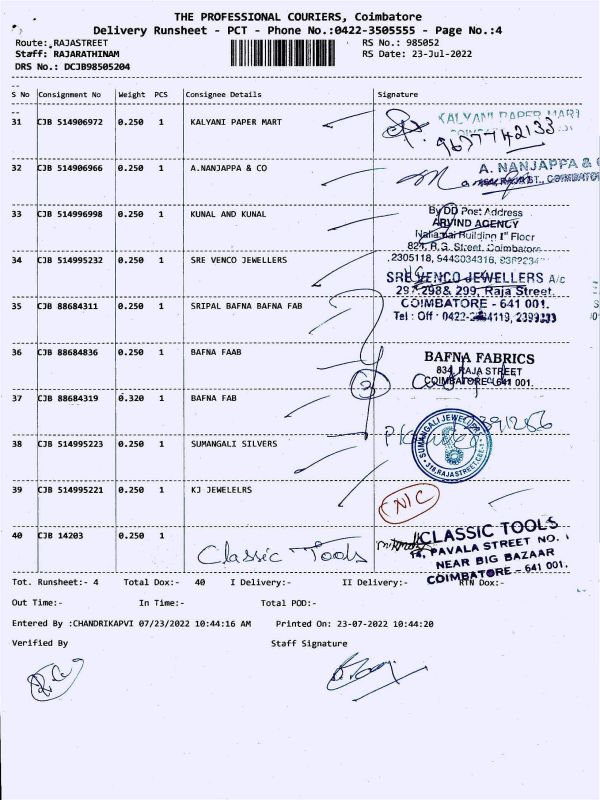 THE PROFESSIONAL COURIERS, Coimbatore
Delivery Runsheet - PCT - Phone No.:0422-3505555 - Page No.:4
Route: RAJASTREET RS No.: 985052
Staff: RAJARATHINAM RS Date: 23-Jul-2022
DRS No.: DCJB98505204
S No Consignment No Weight PCS Consignee Details Signature
31 CJB 514906972 0.250 1 KALYANI PAPER MART KALYANI PAPER MART
9677742133
32 CJB 514906966 0.250 1 A.NANJAPPA & CO A. NANJAPPA &
RAJA ST., COIMBATOR
33 CJB 514996998 0.250 1 KUNAL AND KUNAL By DD Post Address
ARVIND AGENCY
Nallamai Building 1st Floor
R.G. Street, Coimbatore
34 CJB 514995232 0.250 1 SRE VENCO JEWELLERS 2305118, 5443034316,
SRE VENCO JEWELLERS A/c
297 298& 299, Raja Street,
35 CJB 88684311 0.250 1 SRIPAL BAFNA BAFNA FAB COIMBATORE - 641 001.
Tel : Off - 0422-
36 CJB 88684836 0.250 1 BAFNA FAAB BAFNA FABRICS
834, RAJA STREET
COIMBATORE - 641 001.
3
37 CJB 88684319 0.320 1 BAFNA FAB
38 CJB 514995223 0.250 1 SUMANGALI SILVERS SUMANGALI JEWELLERY
318, RAJA STREET, CBE-1
39 CJB 514995221 0.250 1 KJ JEWELELRS NIC
40 CJB 14203 0.250 1 Classic Tools CLASSIC TOOLS
14, PAVALA STREET NO. 1
NEAR BIG BAZAAR
COIMBATORE - 641 001.
Tot. Runsheet:- 4 Total Dox:- 40 I Delivery:- II Delivery:- RTN Dox:-
Out Time:- In Time:- Total POD:-
Entered By :CHANDRIKAPVI 07/23/2022 10:44:16 AM Printed On: 23-07-2022 10:44:20
Verified By Staff Signature